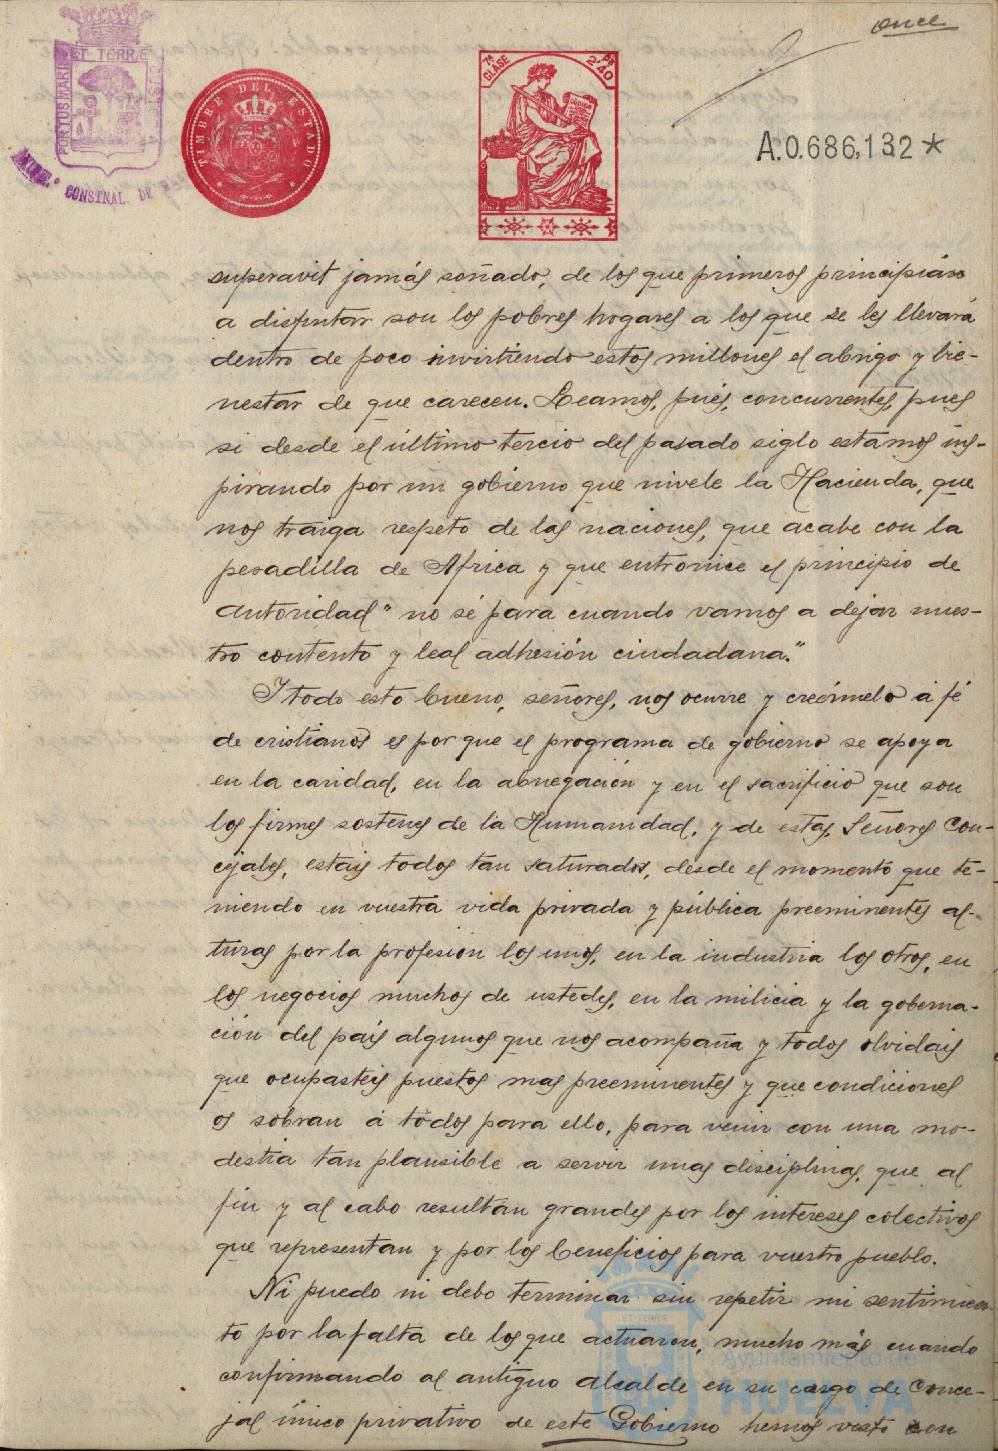 once
PORTUS MARIS ET TERRÆ CUSTO
CONSTNAL. DE
TIMBRE DEL ESTADO
7ª CLASE
PS 2'40
A.0.686,132*
superavit jamás soñado, de los que primeros principián
a disfrutar son los pobres hogares a los que se les llevará
dentro de poco invirtiendo estos millones el abrigo y bie-
nestar de que carecen. Seamos, pués, concurrentes, pues
si desde el último tercio del pasado siglo estamos ins-
pirando por un gobierno que nivele la Hacienda, que
nos traiga respeto de las naciones, que acabe con la
pesadilla de Africa y que entronice el principio de
autoridad" no sé para cuando vamos a dejar nues-
tro contento y leal adhesión ciudadana."
Y todo esto bueno, señores, nos ocurre y creérmelo á fé
de cristianos es por que el programa de gobierno se apoya
en la caridad, en la abnegación y en el sacrificio que son
los firmes sostenes de la Humanidad, y de estas, Señores Con-
cejales, estais todos tan saturados, desde el momento que te-
niendo en vuestra vida privada y pública preeminentes al-
turas por la profesión los unos, en la industria los otros, en
los negocios muchos de ustedes, en la milicia y la goberna-
ción del país algunos que nos acompaña y todos olvidais
que ocupasteis puestos mas preeminentes y que condiciones
os sobran á todos para ello, para venir con una mo-
destia tan plausible a servir unas disciplinas, que al
fin y al cabo resultan grandes por los intereses colectivos
que representan y por los beneficios para vuestro pueblo.
Ni puedo ni debo terminar sin repetir mi sentimien-
to por la falta de los que actuaron, mucho más cuando
confirmando al antiguo alcalde en su cargo de Conce-
jal único privativo de este Gobierno hemos visto con
Ayuntamiento de
HUELVA